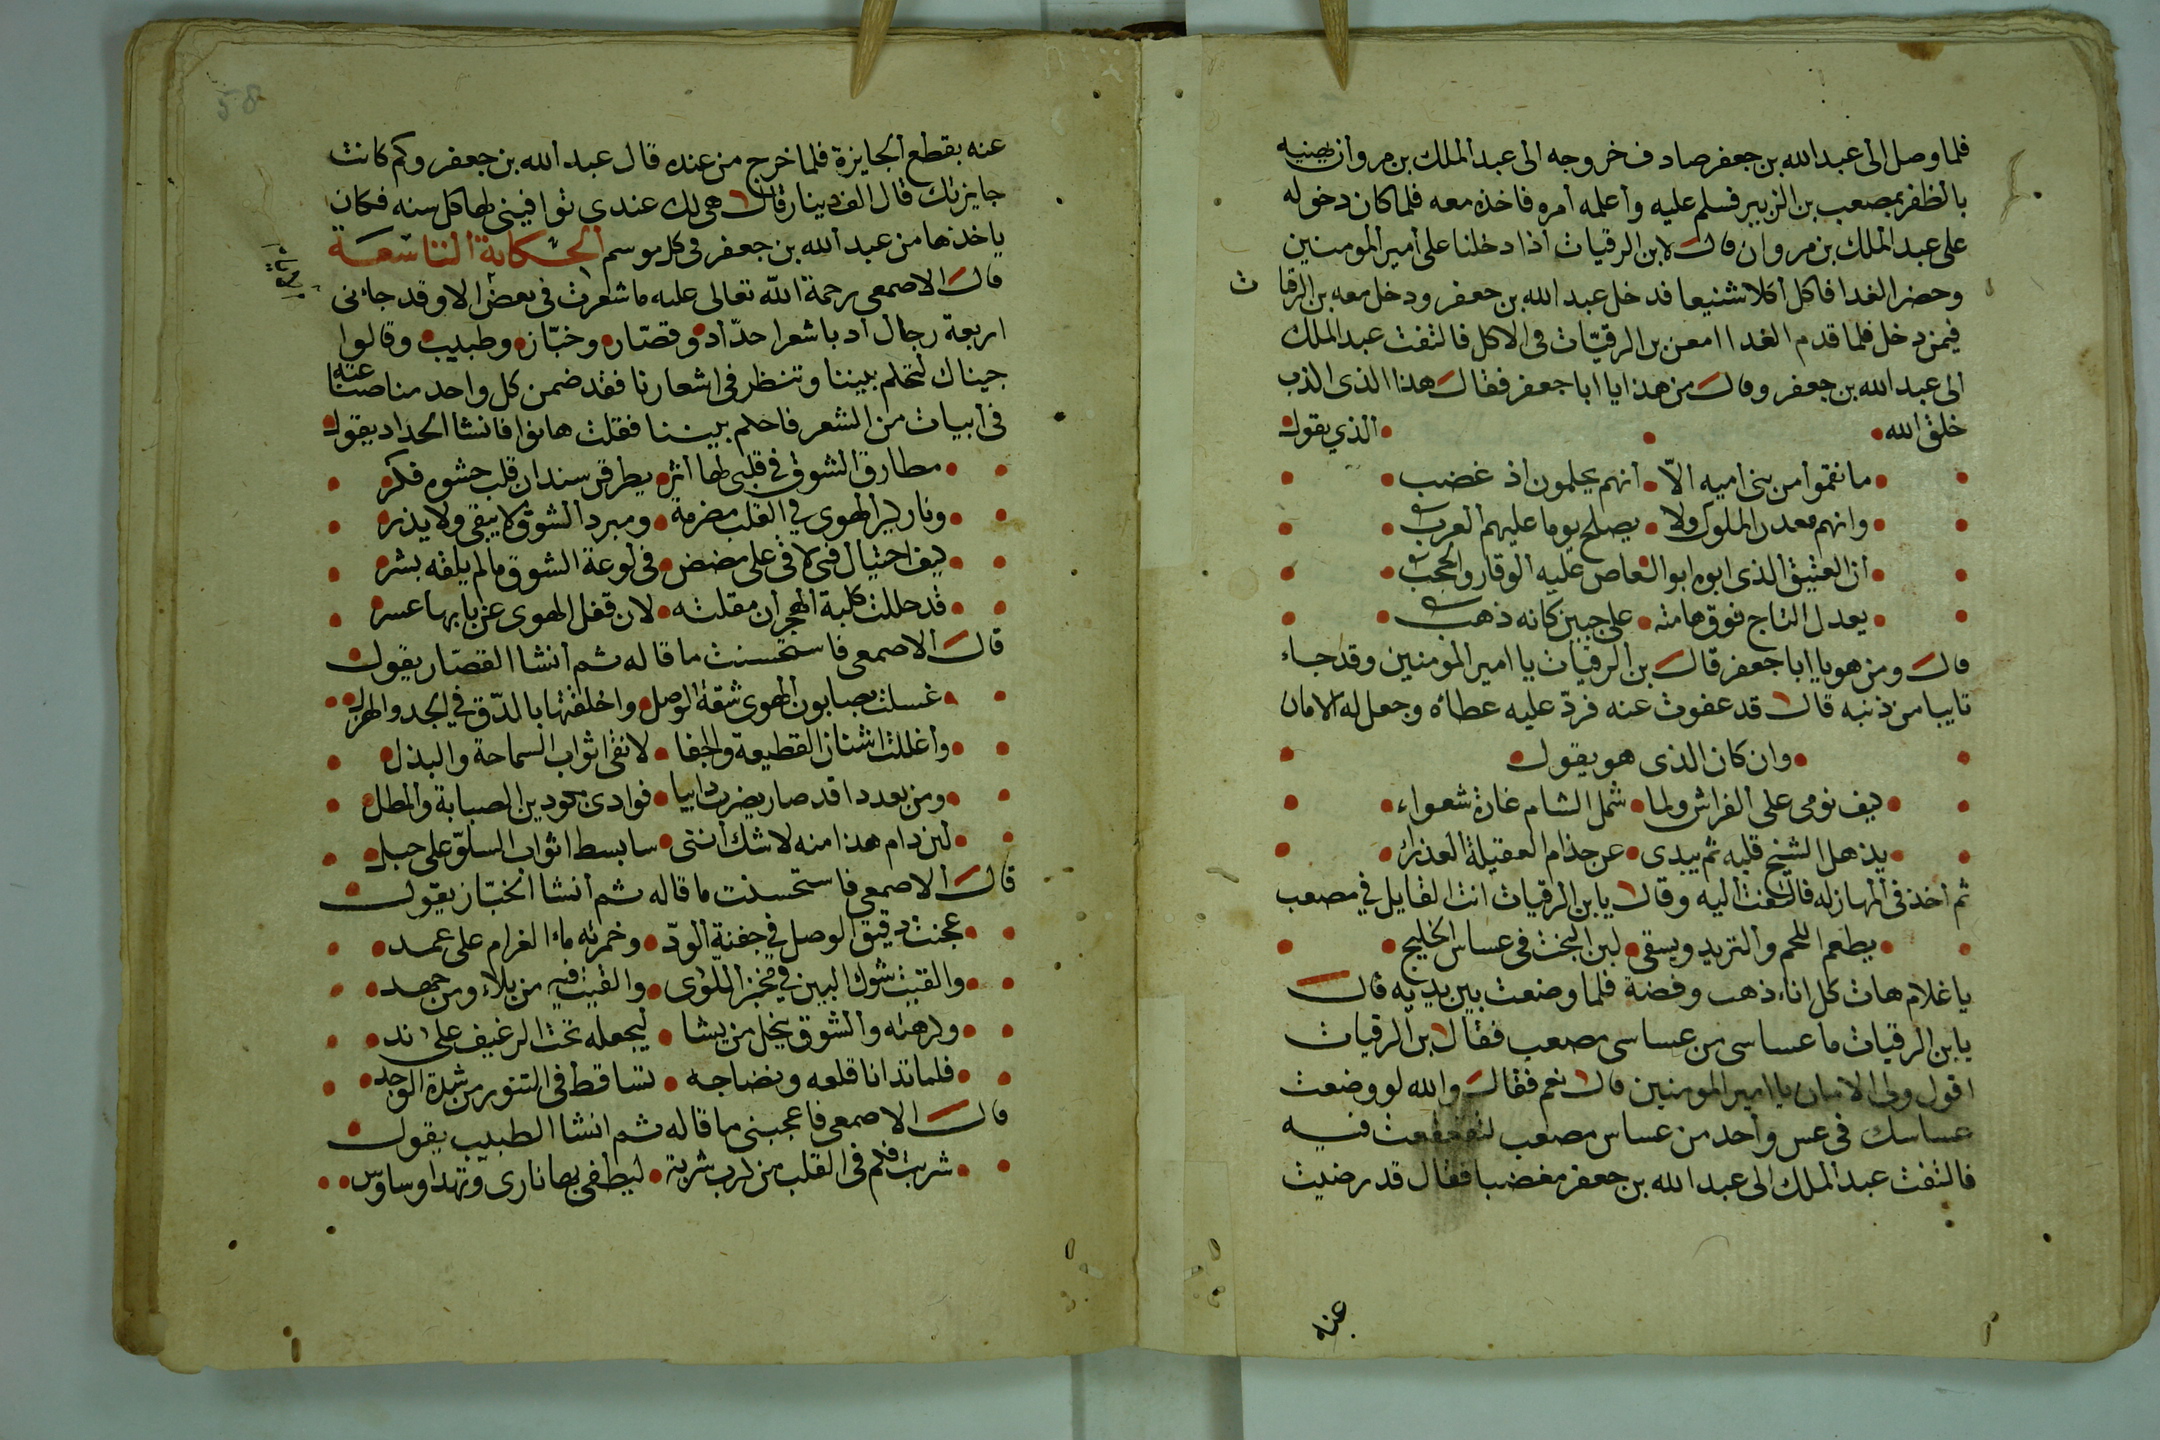 فلما وصل الى عبد الله بن جعفر صادف خروجه الى عبد الملك بن مروان يهنيه
بالظفر بمصعب بن الزبير فسلم عليه وأعلمه أمره فاخذه معه فلما كان دخوله
على عبد الملك بن مروان قال لابن الرقيات أذا دخلنا على أمير المومنين
وحضر الغدا فاكل أكلا شنيعا فدخل عبد الله بن جعفر ودخل معه بن الرقيات
فيمن دخل فلما قدم الغدا امعن بن الرقيّات في الاكل فالتفت عبد الملك
الى عبد الله بن جعفر وقال من هذا يا ابا جعفر فقال هذا الذى الذب
خلق الله الذي يقول
ما نقموا من بنى اميه الاّ انهم يحلمون اذ غضب
وانهم معدن الملوك ولا يصلح يوما عليهم العرب
ان العتيق الذى ابوه ابو العاص عليه الوقار والحجب
يعدل التاج فوق هامته على جبين كانه ذهب
قال ومن هو يا ابا جعفر قال بن الرقيات يا امير المومنين وقد جاء
تايبا من ذنبه قال قد عفوت عنه فردّ عليه عطاه وجعل له الامان
وان كان الذى هو يقول
كيف نومى على الفراش ولما شمل الشام غارة شعواء
يذهل الشيخ قلبه ثم يبدى عن جذام العقيلة العذراء
ثم أخذ في المهازله فالتفت أليه وقال يابن الرقيات انت القايل في مصعب
يطعم اللحم والتريد ويسقى لبن البخت في عساس الخليج
يا غلام هات كل اناء ذهب وفضة فلما وضعت بين يديه قال
يابن الرقيات ما عساسى من عساسى مصعب فقال بن الرقيات
اقول ولى الامان يا امير المومنين قال نعم فقال والله لو وضعت
عساسك في عس وأحد من عساس مصعب فيه
فالتفت عبد الملك الى عبد الله بن جعفر مغضبا فقال قد رضيت
عنه
58
عنه بقطع الجايزة فلما خرج من عنده قال عبد الله بن جعفر وكم كانت
جايزتك قال الف دينار قال هى لك عندى توافينى لها كل سنه فكان
ياخذها من عبد الله بن جعفر في كل موسم الحكاية التاسعة
قال الاصمعى رحمة الله تعالى عليه ما شعرت في بعض الاوقد جانى
اربعة رجال ادبا شعرا حدّاد وقصّار وخبّاز وطبيب وقالوا
جيناك لتحكم بيننا وتنظر في اشعارنا فقد ضمن كل واحد منا صنعته
في أبيات من الشعر فاحكم بيننا فقلت هاتوا فانشا الحداد يقول
مطارق الشوق في قلبى لها أثر يطرقن سندان قلب حشوه فكر
ونار كير الهوى في القلب مضرمة ومبرد الشوق لا يبقى ولا يذر
كيف احتيال فتى لاقى على مضض في لوعة الشوق ما لم يلقه بشر
قد حللت كلبة الهجران مقلته لان قفل الهوى عن بابها عسر
قال الاصمعى فاستحسنت ما قاله ثم أنشا القصّار يقول
غسلت بصابون الهوى شقة الوصل واخلقتها بالدّق في الجد والهزل
وأغللت اشنان القطيعة والجفا لانقى اثواب السماحة والبذل
ومن بعد دا قد صار يضرب دايبا فوادى بكودين الصبابة والمطل
لين دام هذا منه لا شك أننى سابسط اثواب السلوّ على حبل
قال الاصمعى فاستحسنت ما قاله ثم أنشا الخبّاز يقول
عجنت دقيق الوصل في جفنة الودّ وخمرته ماء الغرام على عمد
والقيت شوك البين في مخبز اللوى والقيت فيه من بلاء ومن جهد
والشوق يخل من يشا ليجعله تحت الرغيف على
فلما تدانا قلعه ونضاجه تساقط في التنور من شدة الوجد
قال الاصمعى فاعجبنى ما قاله ثم انشا الطبيب يقول
شربت فكم في القلب من كرب شربة ليطفى بها نارى وتهدا وساوس